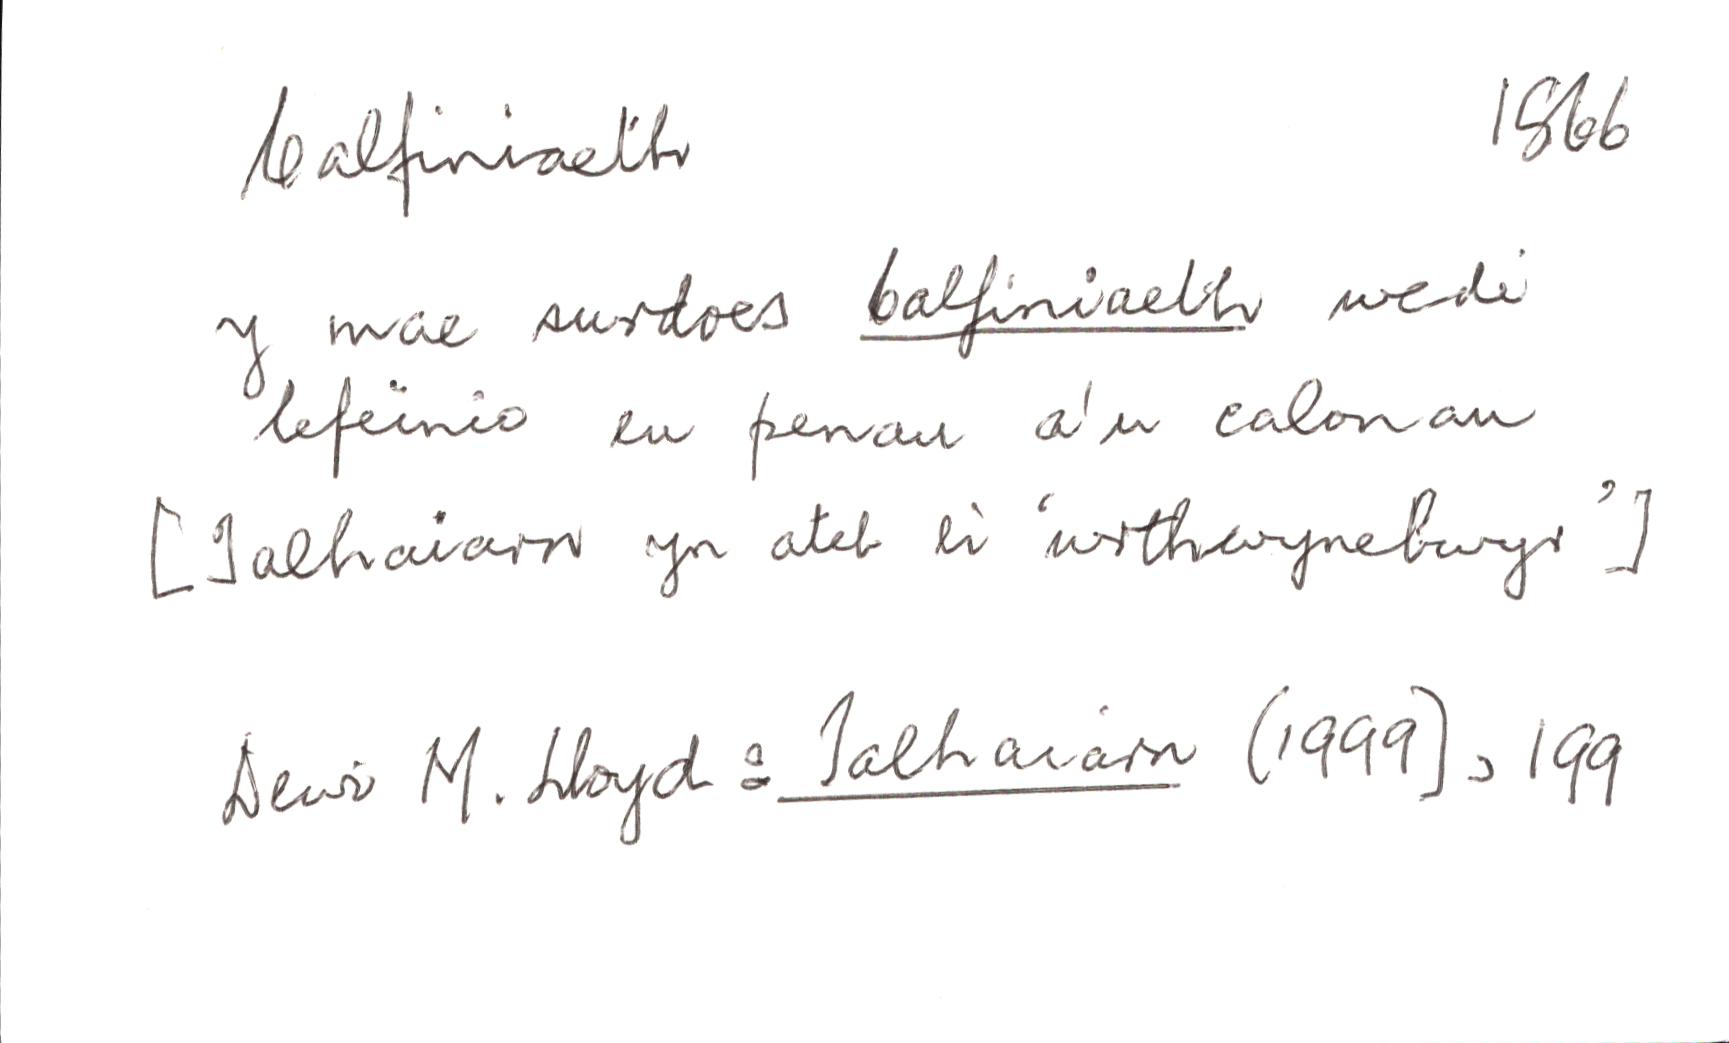 Calfiniaeth 1866
y mae surdoes Calfiniaeth wedi
lefeinio eu penau a'u calonau
[Talhaiarn yn ateb ei 'wrthwynebwyr']
Dewi M. Lloyd : Talhaiarn (1999), 199